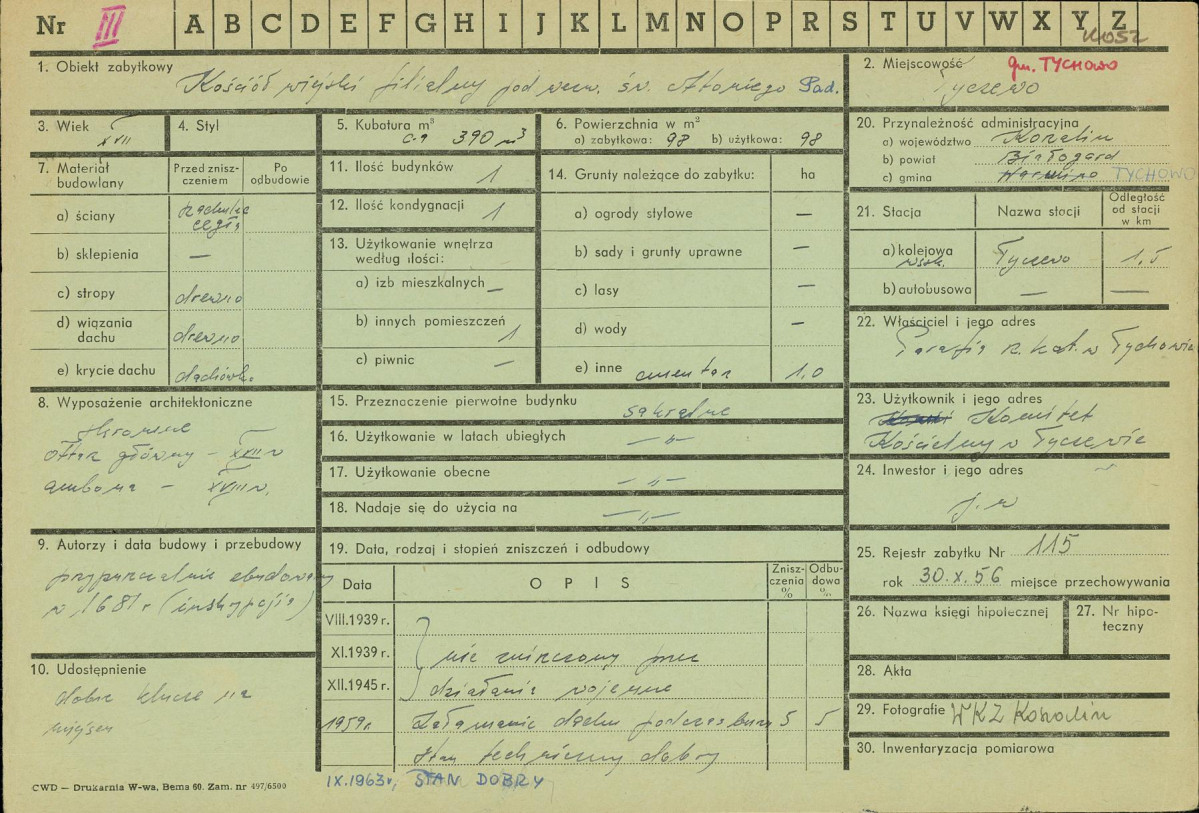 Nr III A B C D E F G H I J K L M N O P R S T U V W X Y Z
1. Obiekt zabytkowy
Kościół wiejski filialny pod wezw. św. Antoniego Pad.
2. Miejscowość gm. TYCHOWO
Tyczewo
3. Wiek
XVII
4. Styl
5. Kubatura m³
c-a 390 m³
6. Powierzchnia w m²
a) zabytkowa: 98 b) użytkowa: 98
20. Przynależność administracyjna
a) województwo Koszalin
b) powiat Białogard
c) gmina TYCHOWO
7. Materiał budowlany
Przed zniszczeniem
Po odbudowie
a) ściany
cegła
b) sklepienia —
c) stropy drewno
d) wiązania dachu drewno
e) krycie dachu dachówka
11. Ilość budynków 1
12. Ilość kondygnacji 1
13. Użytkowanie wnętrza według ilości:
a) izb mieszkalnych —
b) innych pomieszczeń 1
c) piwnic —
14. Grunty należące do zabytku: ha
a) ogrody stylowe —
b) sady i grunty uprawne —
c) lasy —
d) wody —
e) inne cmentarz 1,0
21. Stacja
Nazwa stacji
Odległość od stacji w km
a) kolejowa wsk. Tyczewo 1,5
b) autobusowa — —
22. Właściciel i jego adres
Parafia rz. kat. w Tychowie
8. Wyposażenie architektoniczne
ołtarz główny – XVII w
ambona – XVIII w.
15. Przeznaczenie pierwotne budynku sakralne
16. Użytkowanie w latach ubiegłych — „ —
17. Użytkowanie obecne — „ —
18. Nadaje się do użycia na — „ —
23. Użytkownik i jego adres
Komitet
Kościelny w Tyczewie
24. Inwestor i jego adres
j. w
9. Autorzy i data budowy i przebudowy
przypuszczalnie zbudowany
w 1681 r (inskrypcja)
19. Data, rodzaj i stopień zniszczeń i odbudowy
Data
OPIS
Zniszczenia %
Odbudowa %
VIII.1939 r.
XI.1939 r. nie zniszczony przez
XII.1945 r. działania wojenne
1959 r. Załamanie dachu podczas burzy 5 5
Stan techniczny dobry
IX.1963 r, STAN DOBRY
25. Rejestr zabytku Nr 115
rok 30.X.56 miejsce przechowywania
26. Nazwa księgi hipotecznej
27. Nr hipoteczny
10. Udostępnienie
dobre klucze na
miejscu
28. Akta
29. Fotografie WKZ Koszalin
30. Inwentaryzacja pomiarowa
CWD — Drukarnia W-wa, Bema 60. Zam. nr 497/6500